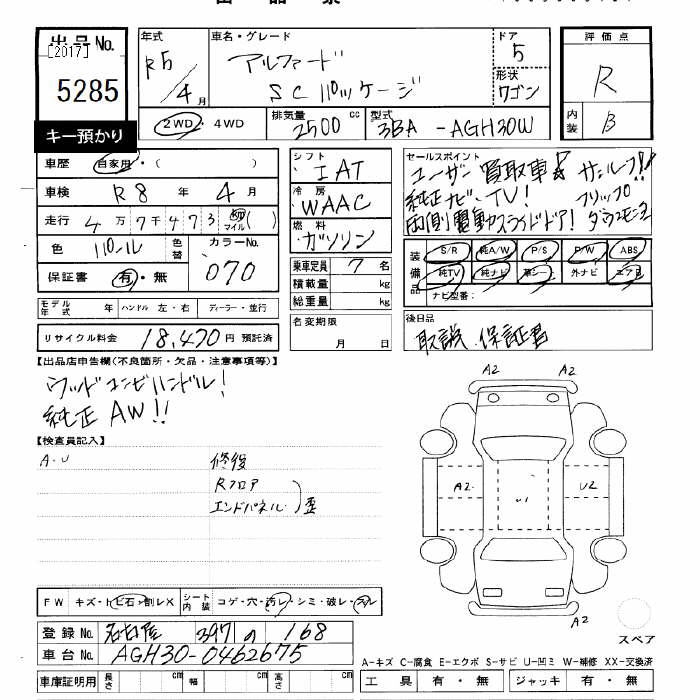 出品票
出品No.
[2017]
5285
キー預かり
年式
R5/4月
車名・グレード
アルファード
SCパッケージ
ドア
5
形状
ワゴン
評価点
R
内装
B
2WD・4WD
排気量
2500 cc
型式
3BA-AGH30W
車歴
自家用・( )
車検
R8年4月
走行
4万7千473 km マイル( )
色
パール
色替
カラーNo.
070
保証書
有・無
シフト
IAT
冷房
WAAC
燃料
ガソリン
乗車定員 7名
積載量 kg
総重量 kg
名変期限
月 日
セールスポイント
ユーザー買取車 サンルーフ!!
純正ナビ・TV! フリップ
両側電動スライドドア! ダウンモニター
装備品
S/R 純A/W P/S P/W ABS
純TV 純ナビ 革シート 外ナビ エアB
ナビ型番:
モデル年式 年 ハンドル 左・右 ディーラー・並行
リサイクル料金 18,470円 預託済
後日品
取説.保証書
【出品店申告欄(不良箇所・欠品・注意事項等)】
ウッドコンビハンドル!
純正AW!!
【検査員記入】
A・U
修復
Rフロア
エンドパネル
歪
A2 A2
A2 U1 U2
A2
スペア
FW キズ・トビ石・割レX
シート内装 コゲ・穴・汚レ・シミ・破レ・スレ
登録No. 名古屋 397 の 168
車台No. AGH30-0462675
車庫証明用 長さ cm 幅 cm 高さ cm
A-キズ C-腐食 E-エクボ S-サビ U-凹ミ W-補修 XX-交換済
工具 有・無 ジャッキ 有・無